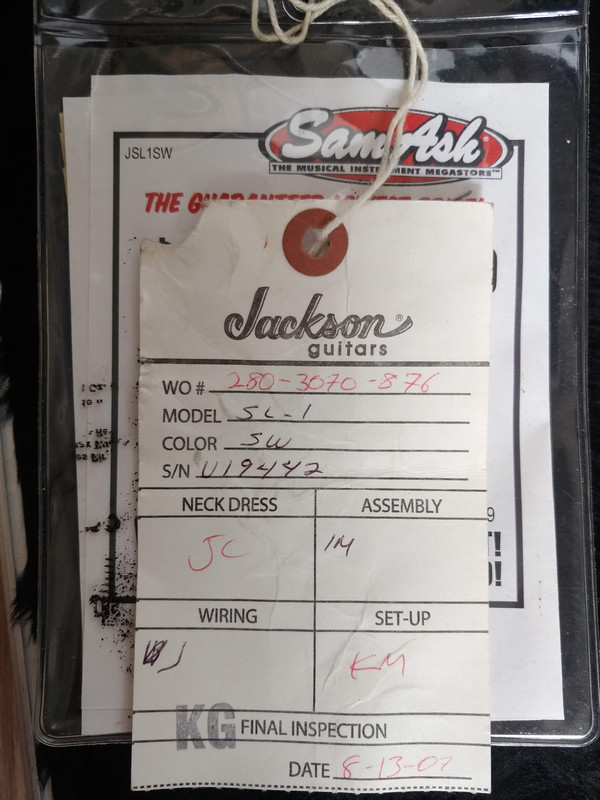 JSL1SW
SamAsh®
THE MUSICAL INSTRUMENT MEGASTORES™
THE
Jackson®
guitars
WO # 280-3070-876
MODEL SL-1
COLOR SW
S/N U19442
NECK DRESS ASSEMBLY
JC IM
WIRING SET-UP
J KM
KG FINAL INSPECTION
DATE 8-13-07